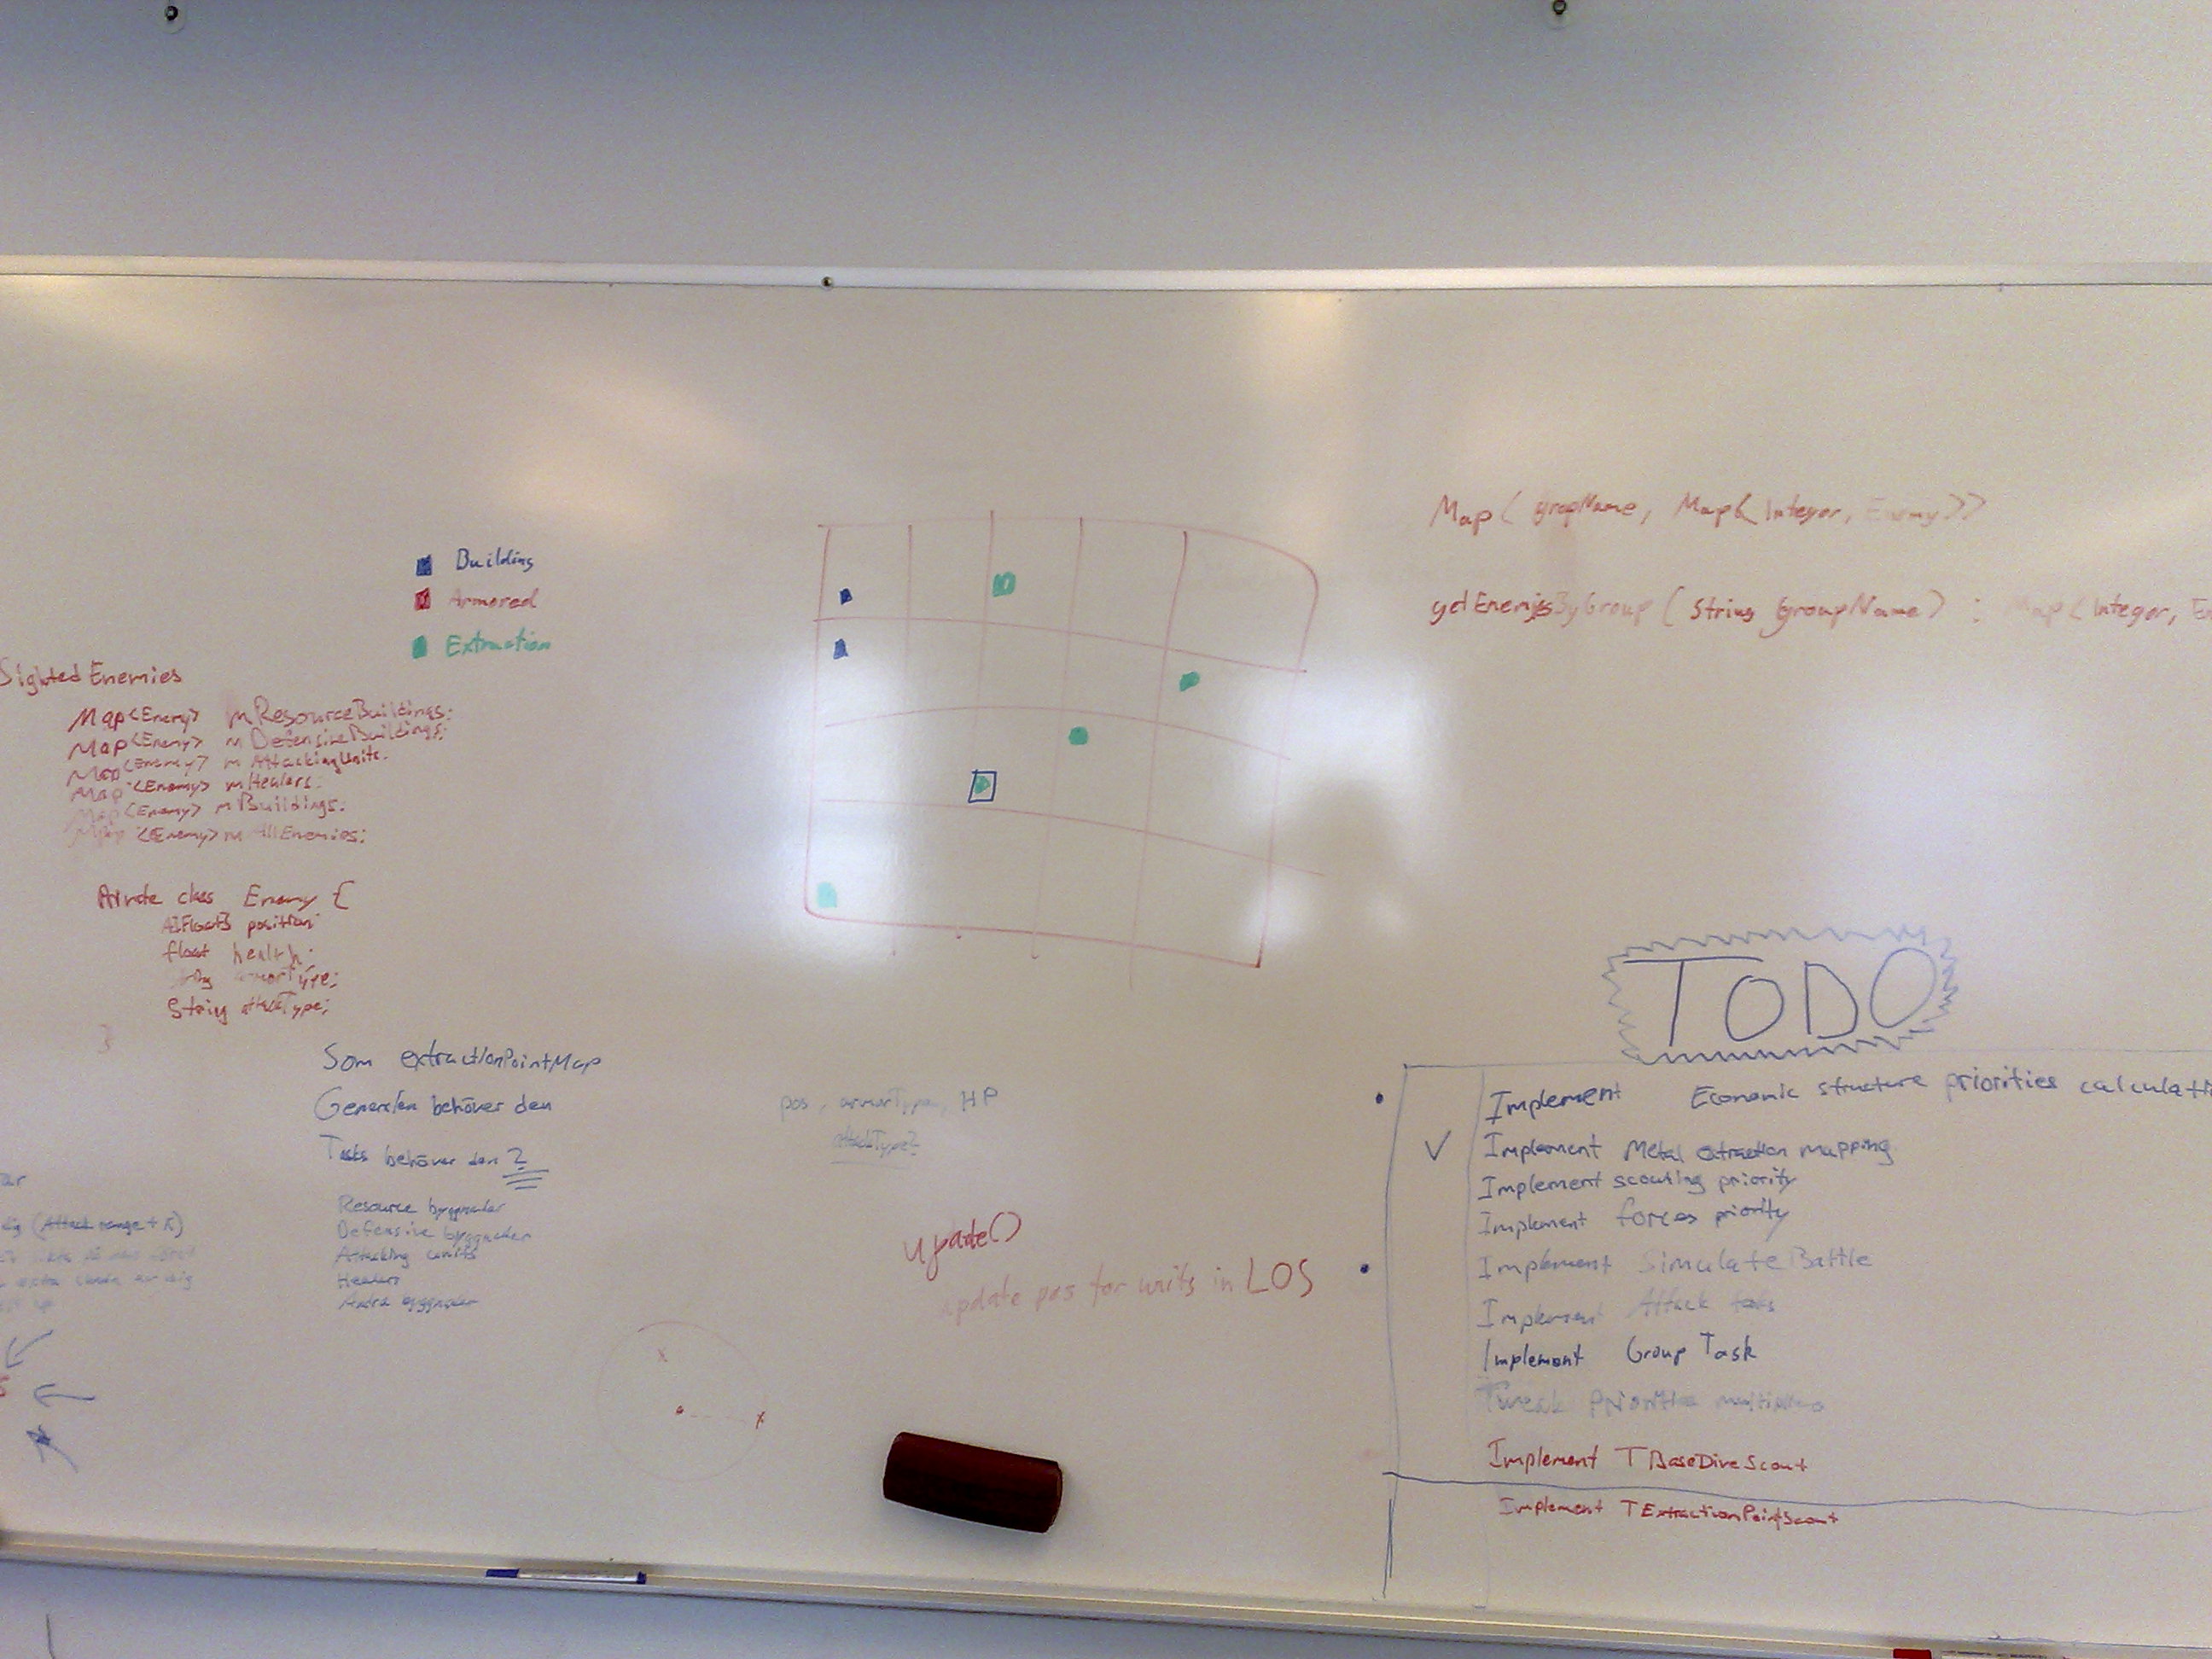 Building
Armored
Extraction
Sighted Enemies
Map<Enemy> mResourceBuildings;
Map<Enemy> mDefensiveBuildings;
Map<Enemy> mAttackingUnits.
Map<Enemy> mHealers.
Map<Enemy> mBuildings.
Map<Enemy> mAllEnemies;
Private class Enemy {
AIFloat3 position;
float health;
armorType;
String attackType;
}
Som extractionPointMap
Generalen behöver den
Tasks behöver den ?
Resource byggnader
Defensive byggnader
Attacking units
Healers
Andra byggnader
(Attack range +
pos, armorType, HP
attackType?
update()
update pos for units in LOS
Map< gropName, Map< Integer, Enemy>>
getEnemysByGroup ( String groupName) : Map< Integer,
TODO
Implement Economic structure priorities
Implement Metal extraction mapping
Implement scouting priority
Implement forces priority
Implement SimulateBattle
Implement Attack
Implement Group Task
Tweak
Implement TBaseDiveScout
Implement TExtractionPointScout